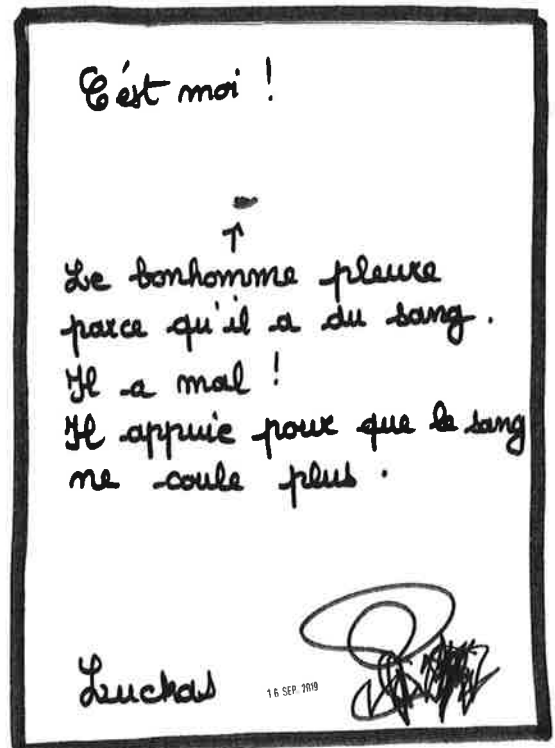 C'est moi !
↑
Le bonhomme pleure
parce qu'il a du sang.
Il a mal !
Il appuie pour que le sang
ne coule plus.
Luckas
16 SEP. 2019